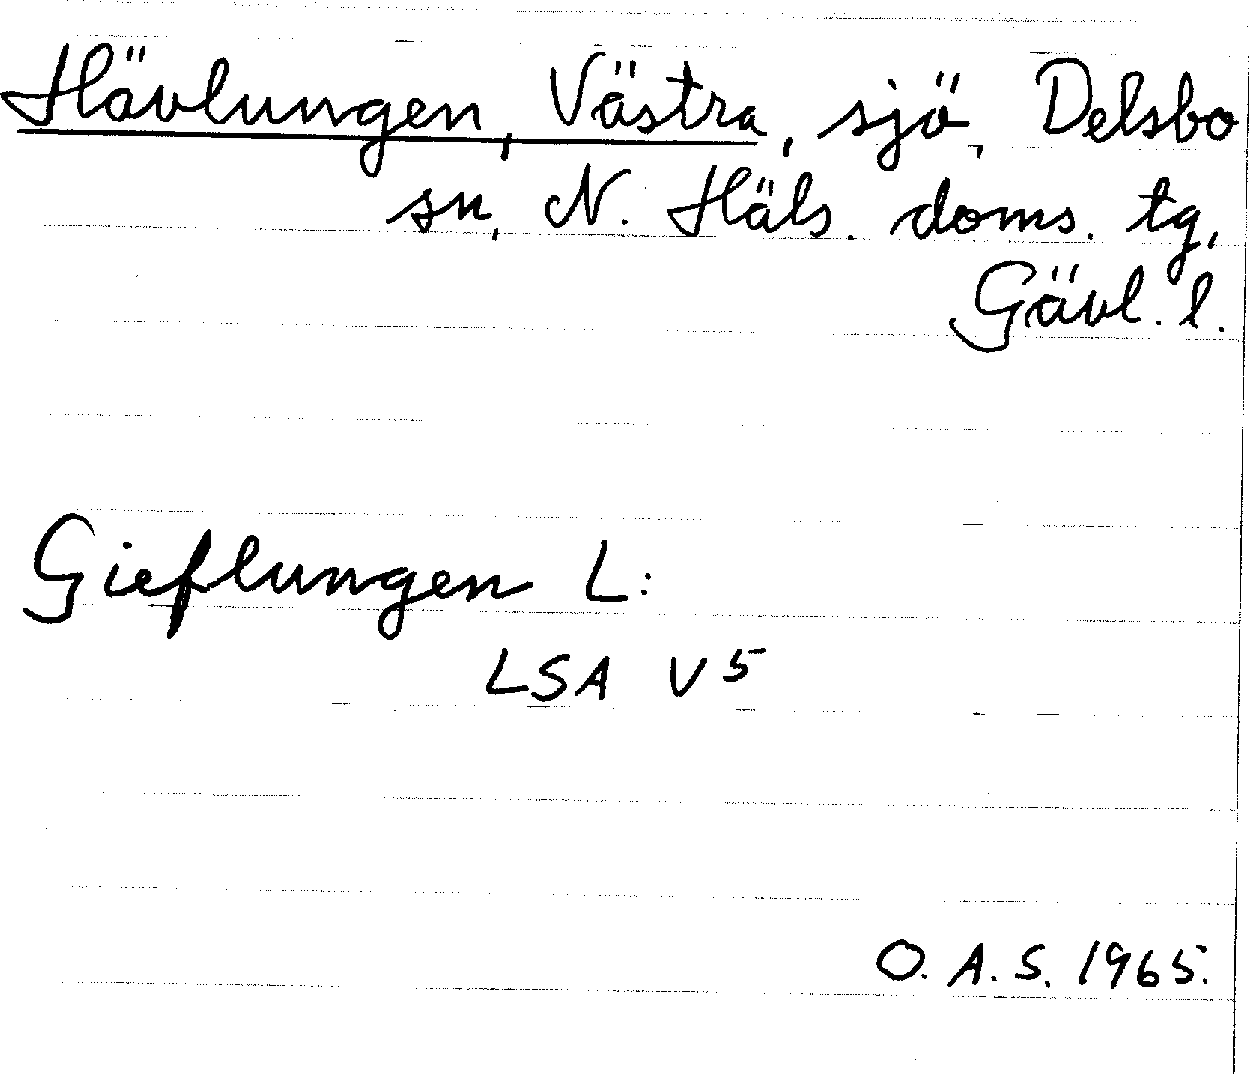 Hävlungen, Västra, sjö, Delsbo
sn, N. Häls. doms. tg,
Gävl. l.
Gieflungen L:
LSA V5
O. A. S. 1965.